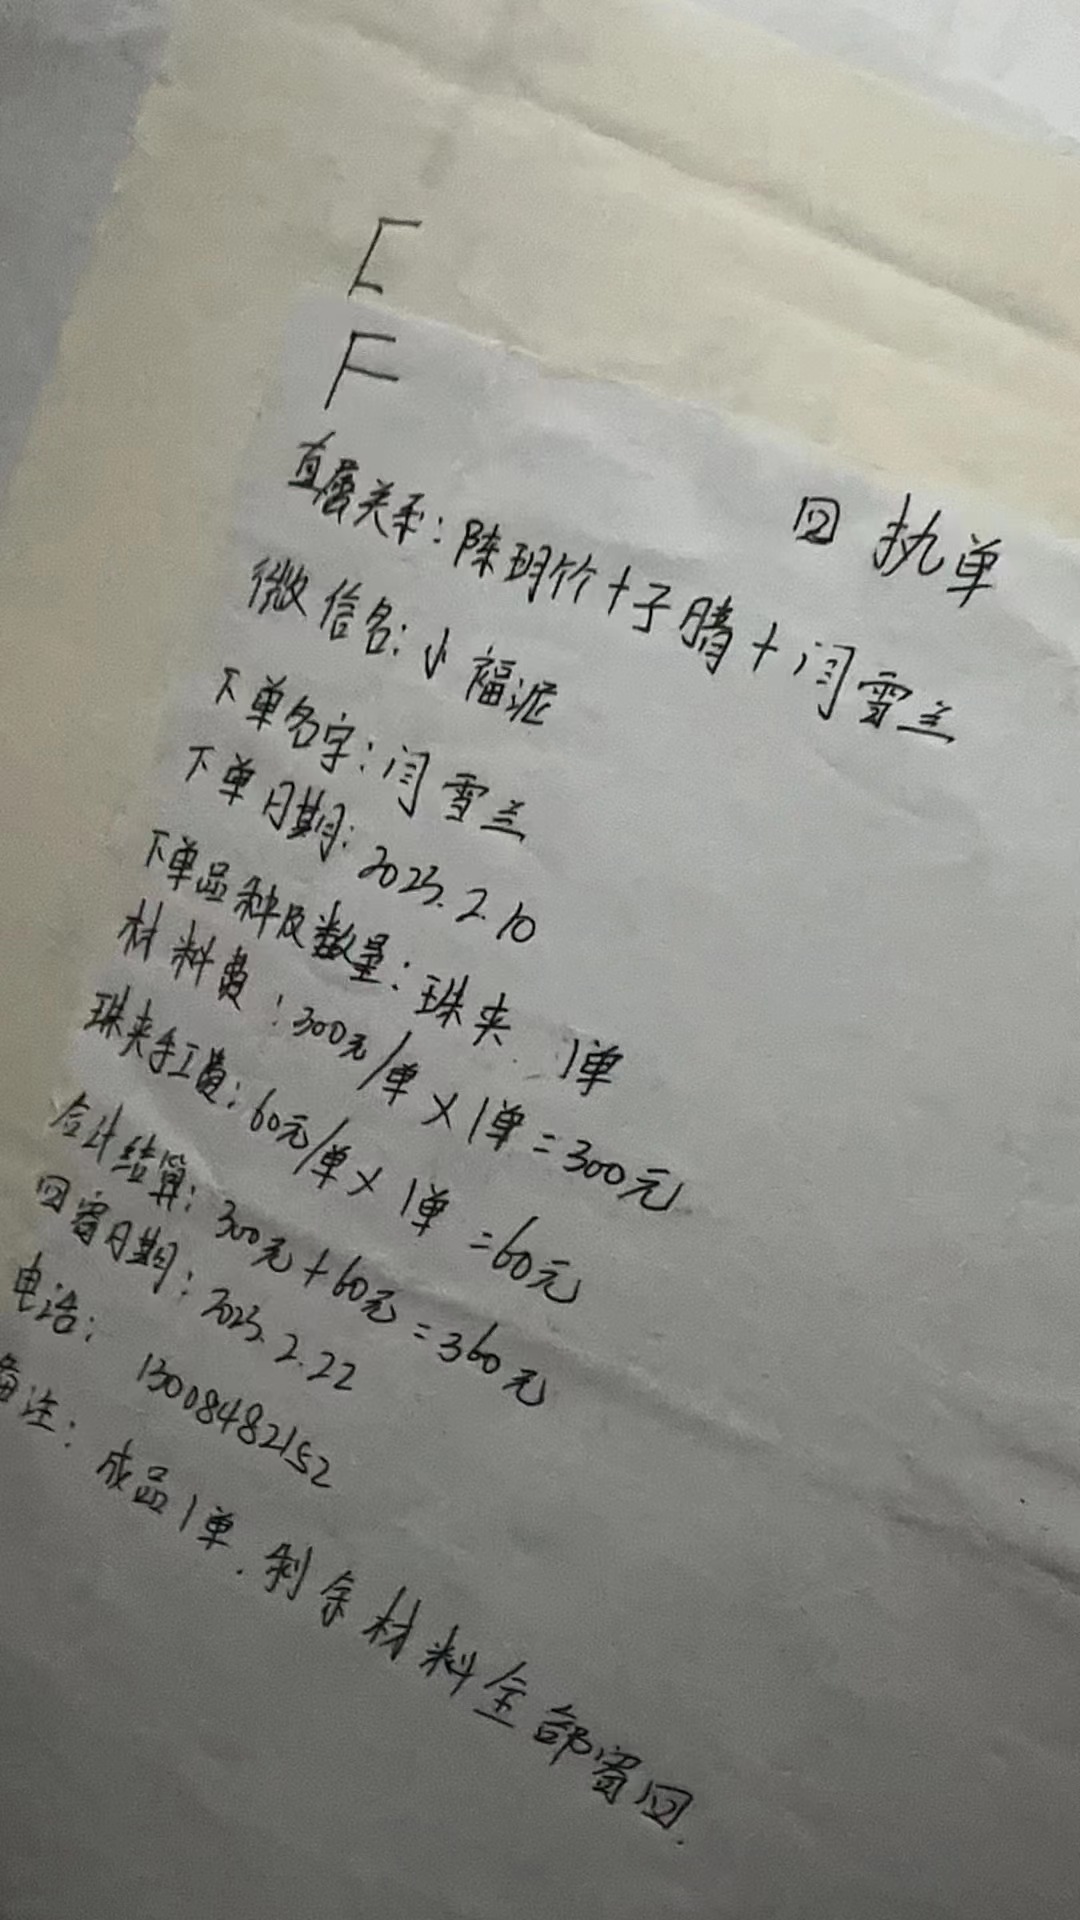 E
F
回执单
直属关系：陈玥竹+子腈+闫雪兰
微信名：小福泥
下单名字：闫雪兰
下单日期：2023.2.10
下单品种及数量：珠夹 1单
材料费：300元/单×1单=300元
珠夹手工费：60元/单×1单=60元
合计结算：300元+60元=360元
回寄日期：2023.2.22
电话：13008482152
备注：成品1单.剩余材料全部寄回.